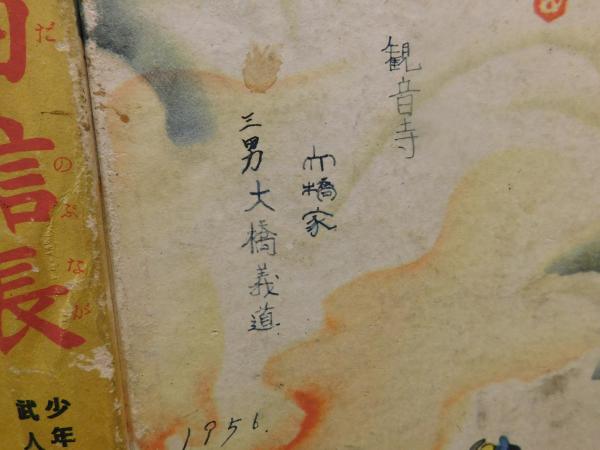 観音寺
大橋家
三男 大橋義道
1956.
信長
だ
のぶなが
少年
武人